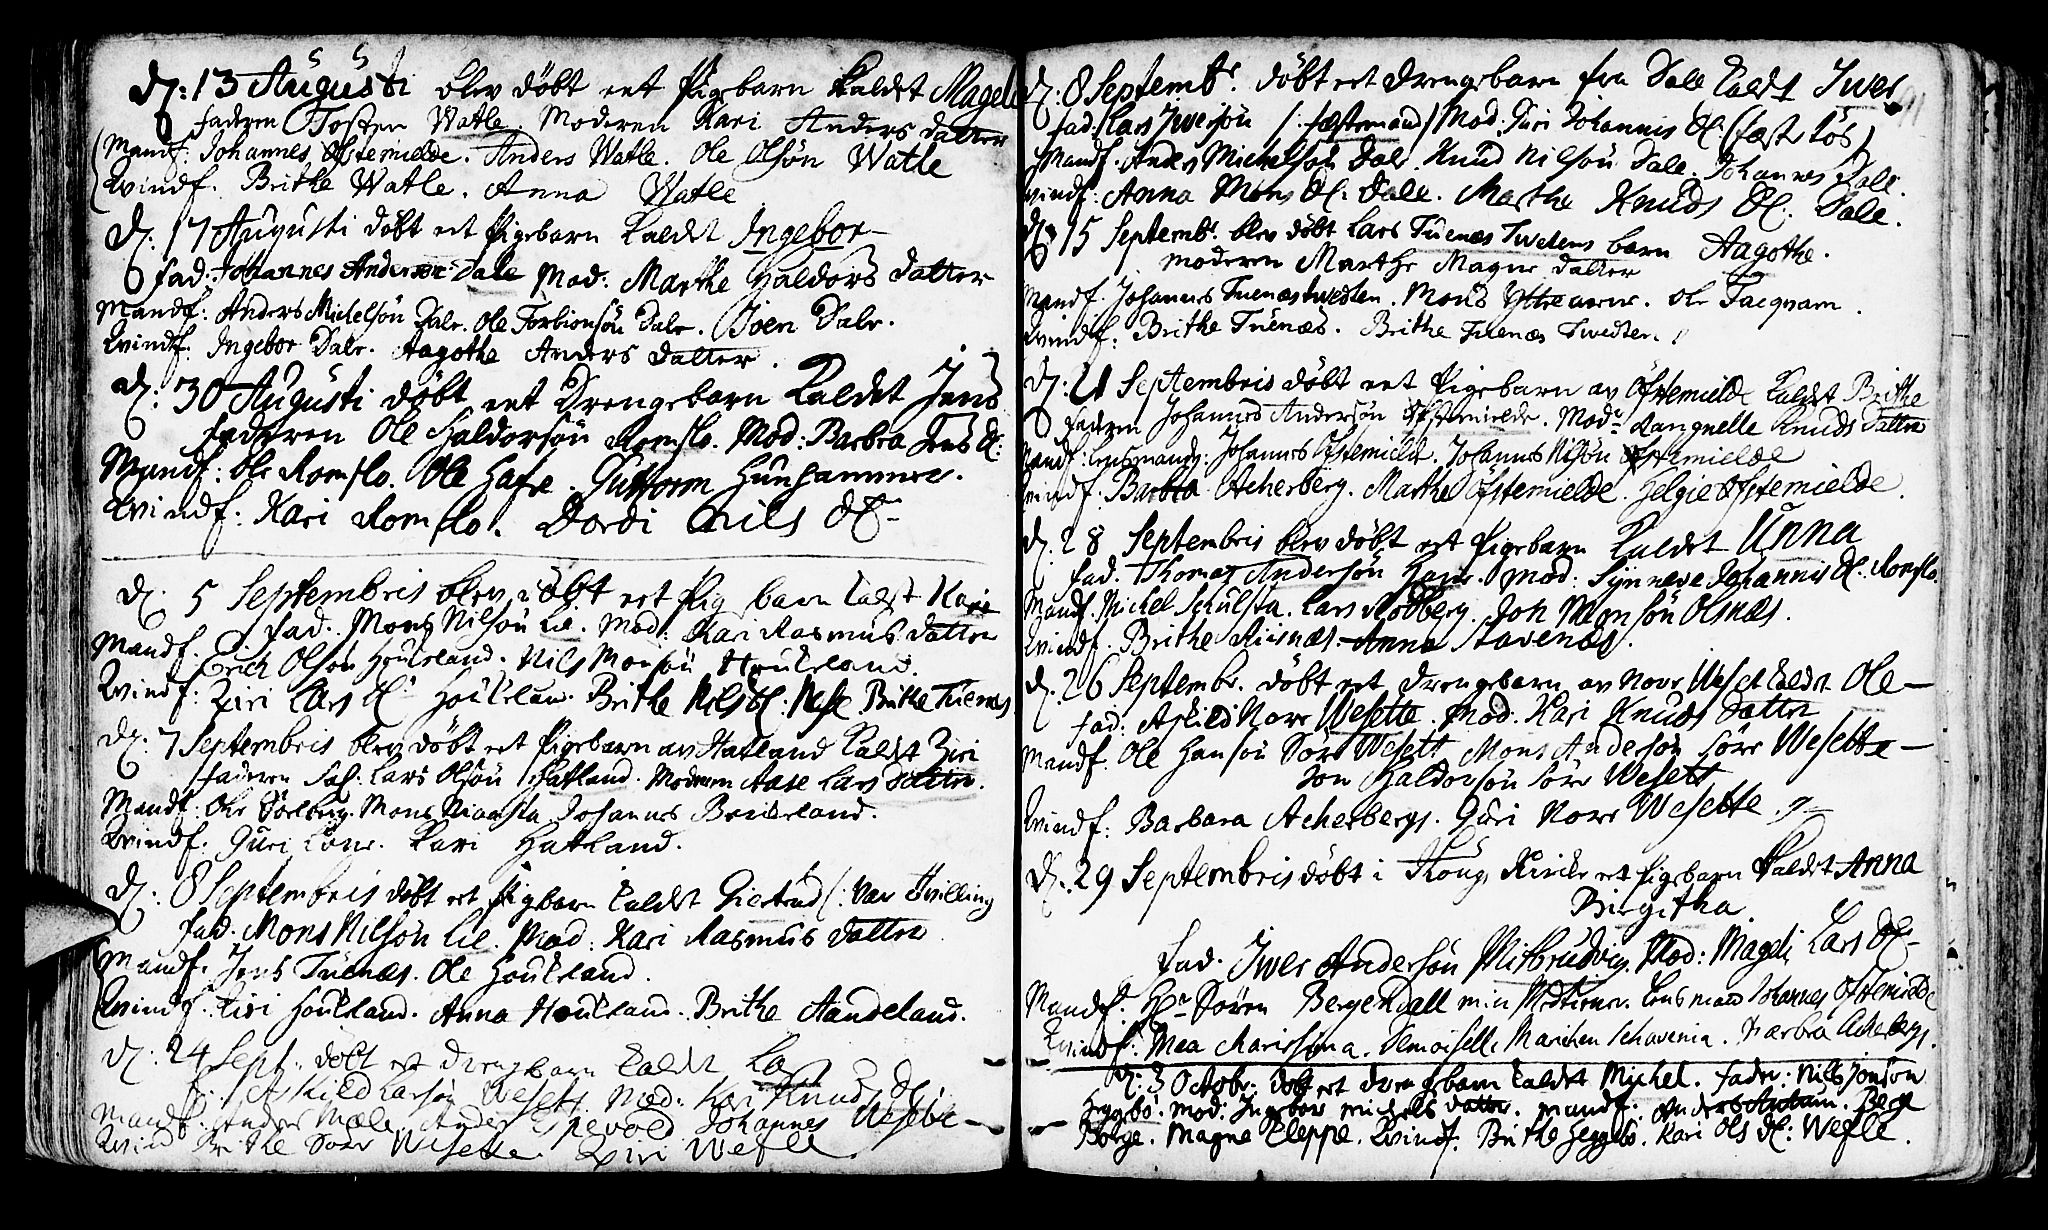 D: 13 Augusti blev döbt eet Pigebarn kaldet Mageli
faderen Tosten Watle. Moderen Kari Anders datter
Mandf: Johannes Ofstemielde. Anders Watle. Ole Olsön Watle
Kvindf. Brithe Watle. Anna Watle
D: 17 Augusti döbt eet Pigebarn kaldet Ingebor
fad: Johannes Anderson Dale Mod: Marthe Haldors datter
Mandf: Anders Michelsön Dale. Ole Torbiönsön Dale. Joen Dale.
Kvindf. Ingebor Dale. Aagothe Anders datter.
D: 30 Augusti döbt eet Drengebarn kaldet Jens
faderen Ole Haldorsön Romslo. Mod: Barbra Jens D:
Mandf: Ole Romslo. Ole Hafre. Guttorm Hunhammer.
Kvindf: Kari Romslo. Dordi Nils D:
D: 5 Septembris blev döbt eet Pigebarn kalt Kari
fad. Mons Nilsön Lie. Mod: Kari Rasmus datter
Mandf. Erich Olsön Houkeland. Nils Monsön Houkeland.
Kvindf: Ziri Lars D: Houkeland. Brithe Nils D: Brithe Tuenes
D: 7 Septembris blev döbt eet Pigebarn av Hatland kaldt Ziri
faderen Sal: Lars Olsön Hatland. Moderen Aase Lars datter.
Mandf: Ole Mons Johannes
Kvindf. Guri Löne. Kari Hatland.
D: 8 Septembris döbt eet Pigebarn kaldet Giertrud (: var Tvilling
fad. Mons Nilsön Lie. Mod: Kari Rasmus datter
Mandf. Jens Tuenæs. Ole Houkeland.
Kvindf. Ziri Houkeland. Anna Houkeland. Brithe Aandeland.
D: 24 Sept: döbt eet drengebarn kaldet La
Askild Larsön Wesette Mod: Kari Knuds D:
Mandf: Anders Mæle. Anders Johannes Wesette
Kvind Brithe Sörr Wesette. Ziri Wefle.
D: 8 Septembr döbt eet Drengebarn fra Dale kaldt Iver
fad: Lars Iversön (: fæstemand) Mod: Guri Johannis D: (fæsteløs)
Mandf. Anders Michelsön Dale. Knud Nilsön Dale. Johannes Dale.
Kvindf: Anna Mons D: Dale. Marthe Knuds D: Dale.
D: 15 Septembr. blev döbt Lars Tuenæs Twetens barn Aagothe.
moderen Marthe Magne datter
Mandf. Johannes Tuenæstwedten. Mons Ole
Kvindf: Brithe Tuenæs. Brithe Tuenæs Twedten.
D: 21 Septembris döbt eet Pigebarn av Ofstemielde kaldet Brithe
faderen Johannes Andersön Ofstemielde. Mod: Rangnelle Knuds datter
Mandf: Lensmand: Johannes Ofstemielde. Johannes Nilsön Ofstemielde
Kvindf: Barbra Acherberg. Marthe Ofstemielde. Helgie Ofstemielde.
D: 28 Septembris blev döbt eet Pigebarn kaldet Anna
fad. Thomas Andersön Hafre. Mod: Synneve Johannis D: Romslo.
Mandf. Michel Schulsta. Lars Rödberg. Joh Monsön Olsnæs.
Kvindf: Brithe Riisnæs. Anna Stavenæs.
D. 26 Septembr. döbt eet drengebarn av Norr Weset kaldet Ole
fad: Askild Norr Wesette. Mod: Kari Knuds datter
Mandf. Ole Hansön Sörr Wesett Mons Andersön Sörr Wesette
Jon Haldorsön Sörr Wesett
Kvindf: Barbara Acherbergs. Guri Norr Wesette.
D: 29 Septembris döbt i Houg Kirke eet Pigebarn kaldet Anna
Birgitha.
fad. Iver Andersön Mitbrudvig. Mod: Mageli Lars D:
Mandf: Hr Sören Bergendall min Lensmand Johannes Ofstemielde
Kvindf: Mea Demoiselle Marichen Schavenia. Barbra Acherbergs.
D. 3 Octobr: döbt eet drengebarn kaldet Michel. fader: Nils Jonsön
Heggbö. Mod: Ingebor Michels datter. Mandf: Anders Berge
Borge. Magne Kleppe. Kvindf. Brithe Heggbö. Kari Ols D: Wefle.